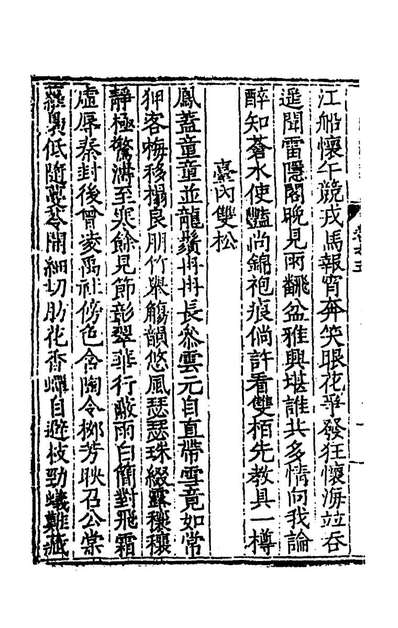 江船懷午競戎馬報宵奔笑眼花爭發狂懷海並吞
遥聞雷隱閣晚見雨飜盆雅興堪誰共多情向我論
醉知蒼水使艷尚錦袍痕倘許看雙栢先教具一樽
臺內雙松
鳳蓋童童並龍鬚冉冉長叅雲元自直帶雪竟如常
狎客梅移榻良朋竹與觴韻悠風瑟瑟珠綴露穰穰
靜極驚濤至炎餘見節彰翠菲行蔽雨白簡對飛霜
虛辱秦封後曾凌禹社傍色含陶令柳芳映召公棠
低隨開細切肪花香自避枝勁蟻難藏